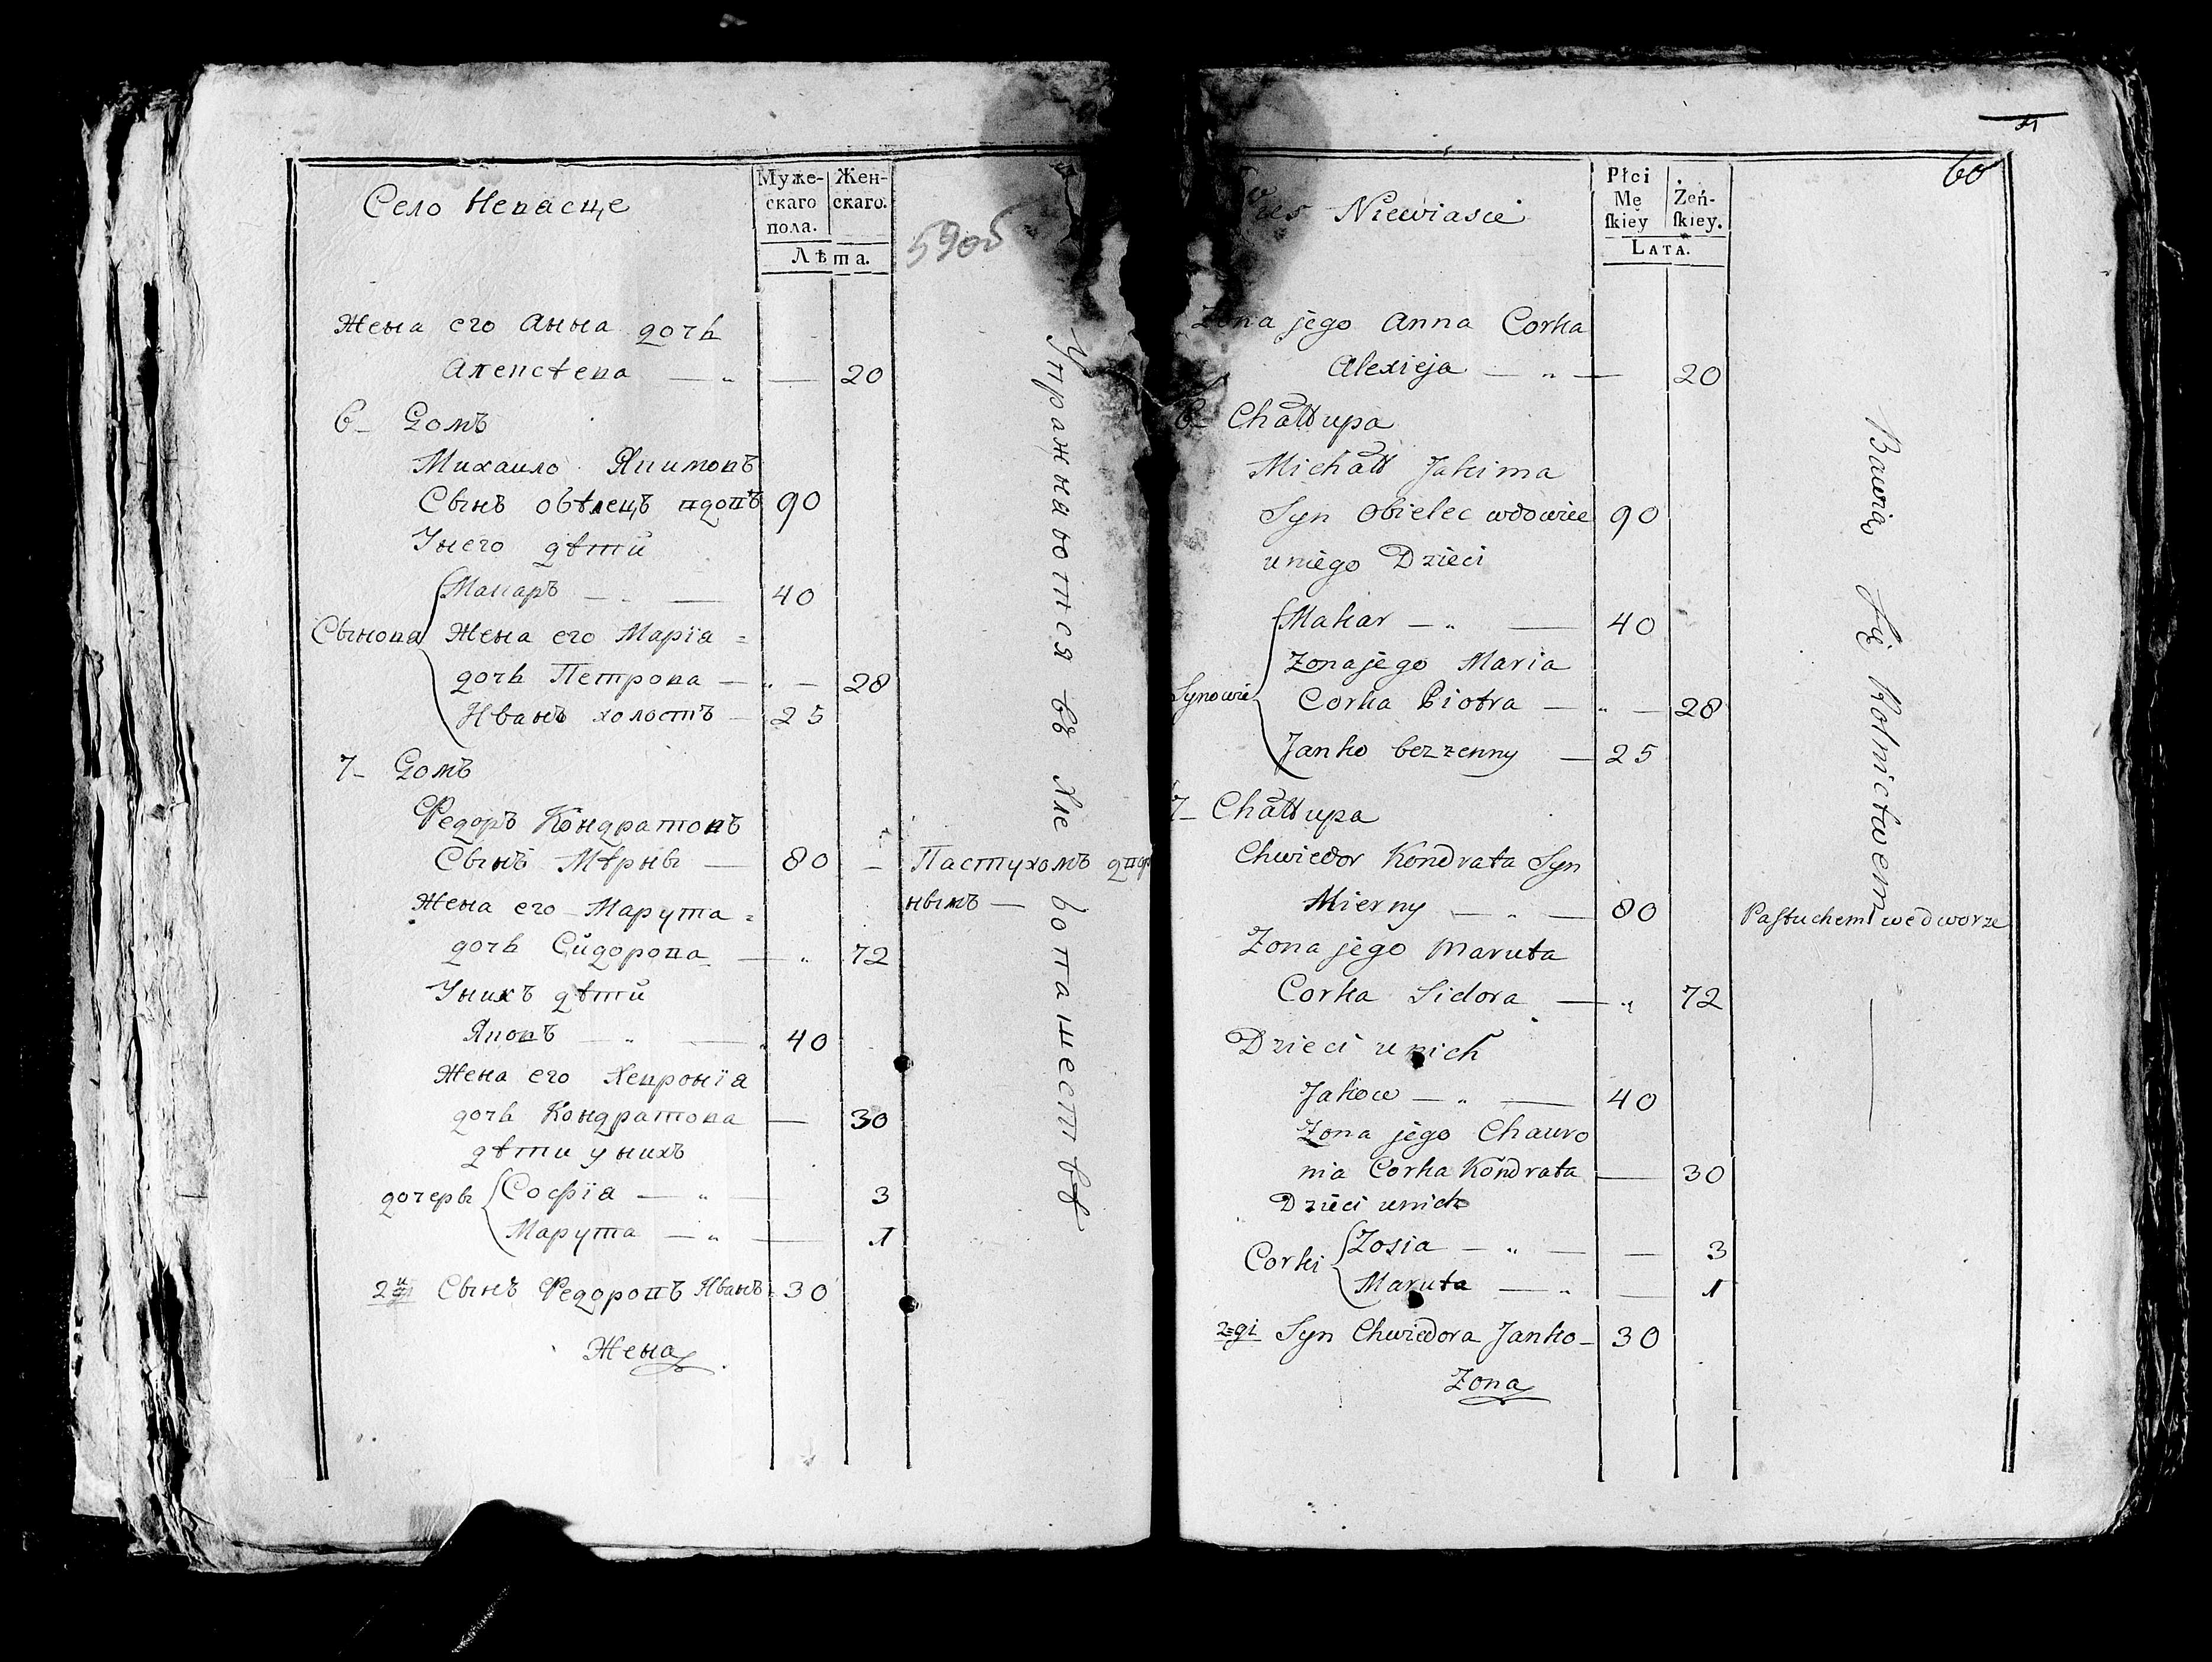 Село Невасще
Муже-
скаго
пола.
Жен-
скаго.
Лѣта.
59об
Жена его Анна дочь
Алексѣева — „ — 20
6 – Домъ
Михаило Якимовъ
Сынъ обѣлецъ вдовъ 90
Унего дѣтй
Макаръ — „ — 40
Сынова
Жена его Марїа =
дочь Петрова — „ — 28
Иванъ холостъ — 25
7 – Домъ
Федоръ Кондратовъ
Сынъ Мѣрны — 80 –
Жена его – Марута =
дочь Сидорова — „ 72
Унихъ дѣтй
Яковъ — „ — 40
Жена его Хевронїа
дочь Кондратова — 30
дѣти унихъ
дочеры
Софїа — „ — 3
Марута — „ — 1
2й Сынъ Федоровъ Иванъ 30
Жена
Пастухомъ двор
нымъ —
Упражнаются въ Хле бопашествѣ
60
Wies Niewiasce
Płci
Mę
ſkiey
Żeń-
ſkiey.
LATA.
Zona jego Anna Corka
Alexieja — „ — 20
6 – Chałłupa
Michałł Jakima
Syn Obielec wdowiec 90
uniego Dzieci
Makar — „ — 40
Synowie
Zona jego Maria
Corka Piotra — „ — 28
Janko bezzenny — 25
7 – Chałłupa
Chwiedor Kondrata Syn
Mierny — „ — 80
Zona jego Maruta
Corka Sidora — „ 72
Dzieci unich
Jakow — „ — 40
Zona jego Chawro
nia Corka Kondrata — 30
Dzieci unich
Corki
Zosia — „ — 3
Maruta — „ — 1
2=gi Syn Chwiedora Janko – 30
Zona
Paſtuchem wedworze
Bawią Się Rolnictwem —